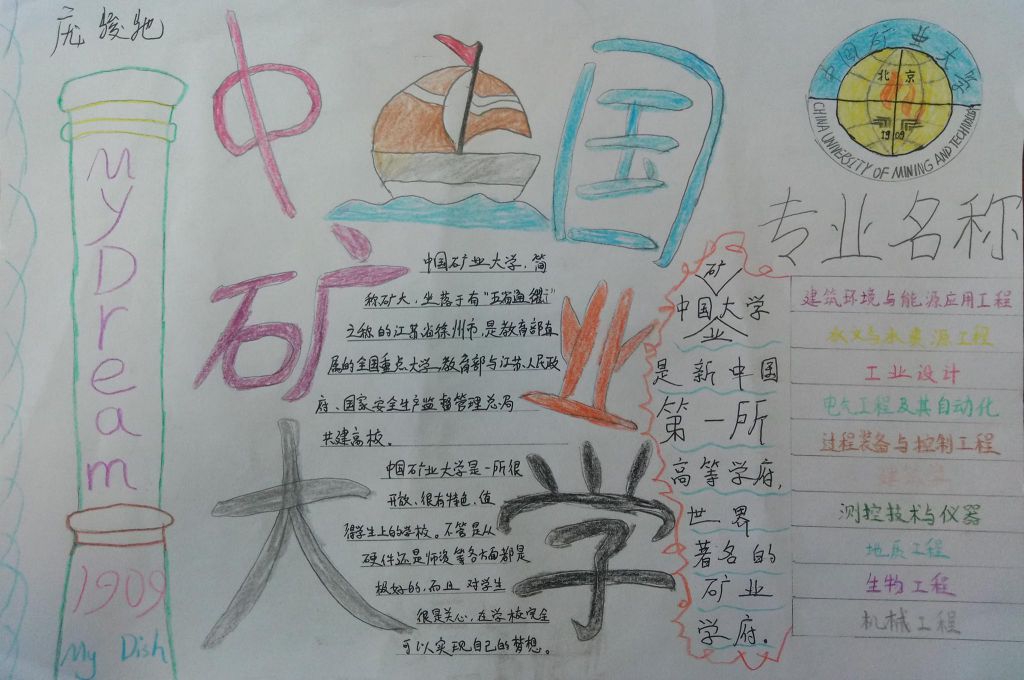 庞骏驰
中国
矿业
大学
My Dream
1909
My Dish
中国矿业大学，简
称矿大，坐落于有“五省通衢”
之称的江苏省徐州市，是教育部直
属的全国重点大学，教育部与江苏人民政
府、国家安全生产监督管理总局
共建高校。
中国矿业大学是一所很
开放、很有特色、值
得学生上的学校。不管是从
硬件还是师资等各方面都是
极好的，而且对学生
很是关心，在学校完全
可以实现自己的梦想。
矿
中国大学
业
是新中国
第一所
高等学府，
世界
著名的
矿业
学府。
中国矿业大学
北京
1909
CHINA UNIVERSITY OF MINING AND TECHNOLOGY
专业名称
建筑环境与能源应用工程
水文与水资源工程
工业设计
电气工程及其自动化
过程装备与控制工程
测控技术与仪器
地质工程
生物工程
机械工程